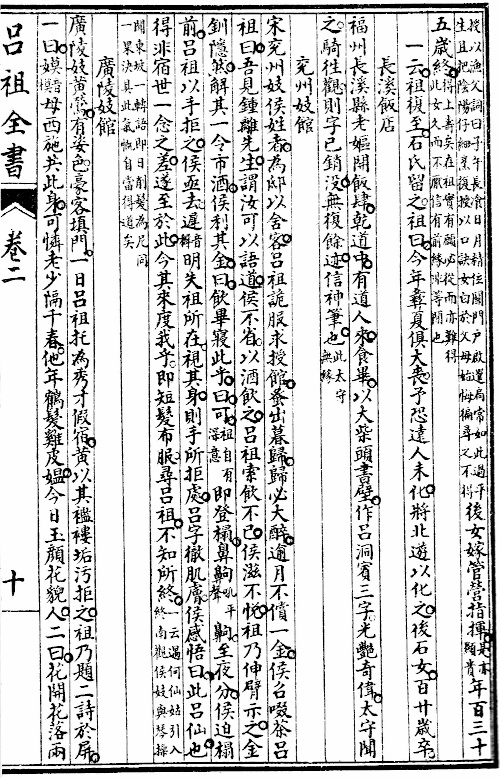 授以漁父詞曰子午長食日月精玄關門戶啟還扃常如此過平
生且把陰陽仔細烹復授以口訣女白於母母始悔徧尋又不得後女嫁管營指揮是亦顯貴年百三十
五歲終此女夫而不厭信有前緣非等閒也
一云祖後至石氏留之祖曰今年彝夏俱大喪予恐達人未化將北遊以化之後石女百廿歲卒
長溪飯店
福州長溪縣老嫗開飯肆乾道中有道人來食畢以大柴頭書壁作呂洞賓三字光艷奇偉太守聞
之騎往觀則字已銷沒無復餘迹信神筆也此太守無緣
兗州妓館
宋兗州妓侯姓者為邸以舍客呂祖詭服求授館蚤出暮歸歸必大醉逾月不償一金侯召啜茶呂
祖曰吾見鍾離先生謂汝可以語道侯不省以酒飲之呂祖索飲不已侯滋不悅祖乃伸臂示之金
釧隱然解其一令市酒侯利其金曰飲畢寢此乎曰可祖自有深意即登榻鼻齁齁至夜分侯迫榻
前呂祖以手拒之侯亟去遲明失祖所在視其身則手所拒處呂字徹肌膚侯感悟曰此呂仙也
得非宿世一念之差遂至於此今其來度我乎即短髮布服尋呂祖不知所終一云遇何仙姑引入終南觀侯妓與琴操
聞東坡一轉語即日削髮為尼同一果決具此氣骨自當得道矣
廣陵妓館
廣陵妓黃鶯有姿色豪客填門一日呂祖托為秀才假宿黃以其襤褸垢污拒之祖乃題二詩於屏
一曰嫫母西施共此身可憐老少隔千春他年鶴髮雞皮媼今日玉顏花貌人二曰花開花落兩
呂祖全書
卷二
十